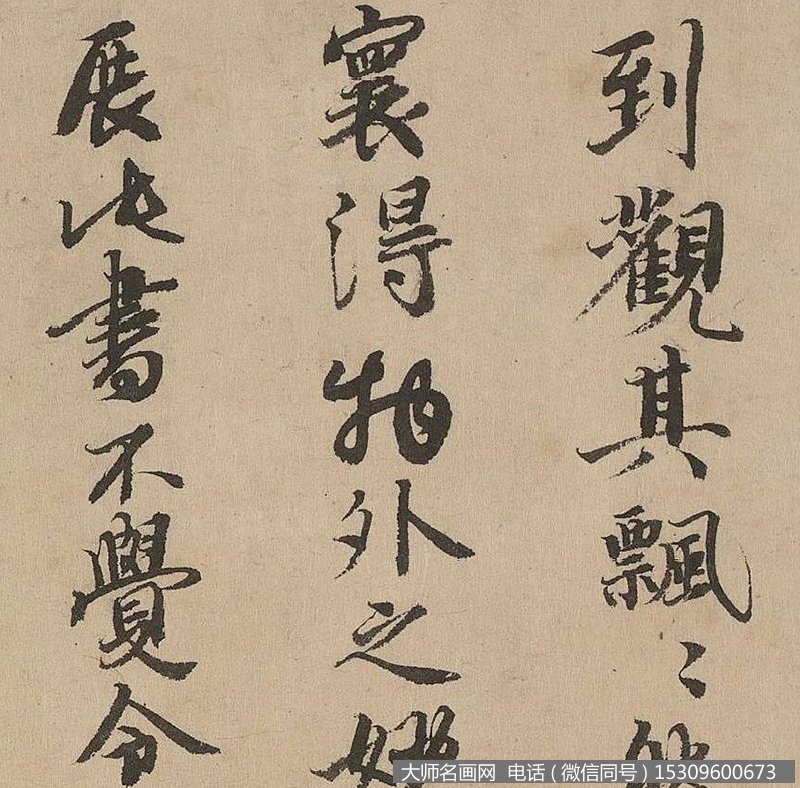 到觀其飄〻
寰得物外之妙
展此書不覺令
大师名画网 电话（微信同号）15309600673